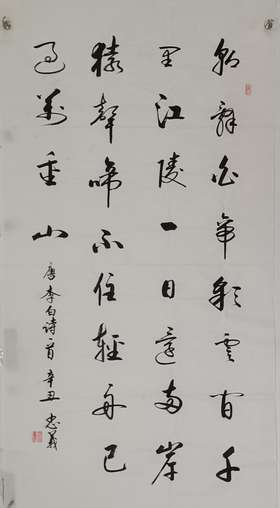 朝辞白帝彩雲间千
里江陵一日還两岸
猿聲啼不住輕舟已
过萬重山
唐李白诗一首辛丑忠義